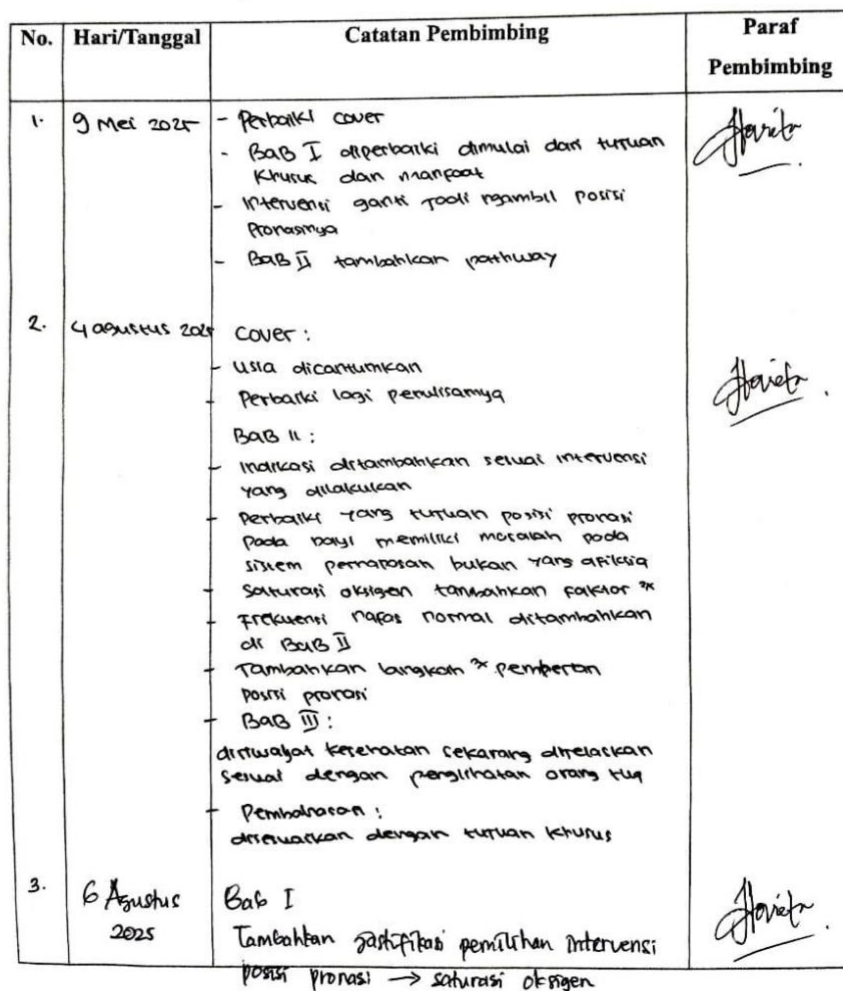 No. Hari/Tanggal Catatan Pembimbing Paraf Pembimbing
1. 9 Mei 2025 - Perbaiki cover
- BAB I diperbaiki dimulai dari tujuan
khusus dan manfaat
- Intervensi ganti jadi ngambil posisi
Pronasinya
- BAB II tambahkan pathway
2. 4 agustus 2025 Cover :
- Usia dicantumkan
- Perbaiki lagi penulisannya
BAB II :
- Indikasi ditambahkan sesuai intervensi
yang dilakukan
- Perbaiki yang tujuan posisi pronasi
pada bayi memiliki masalah pada
sistem pernapasan bukan yang afiksia
- Saturasi oksigen tambahkan faktor
- Frekuensi nafas normal ditambahkan
di BAB II
- Tambahkan langkah pemberian
posisi pronasi
- BAB III :
diriwayat kesehatan sekarang dijelaskan
sesuai dengan penglihatan orang tua
- Pembahasan :
disesuaikan dengan tujuan khusus
3. 6 Agustus 2025 Bab I
Tambahkan justifikasi pemilihan intervensi
posisi pronasi → saturasi oksigen